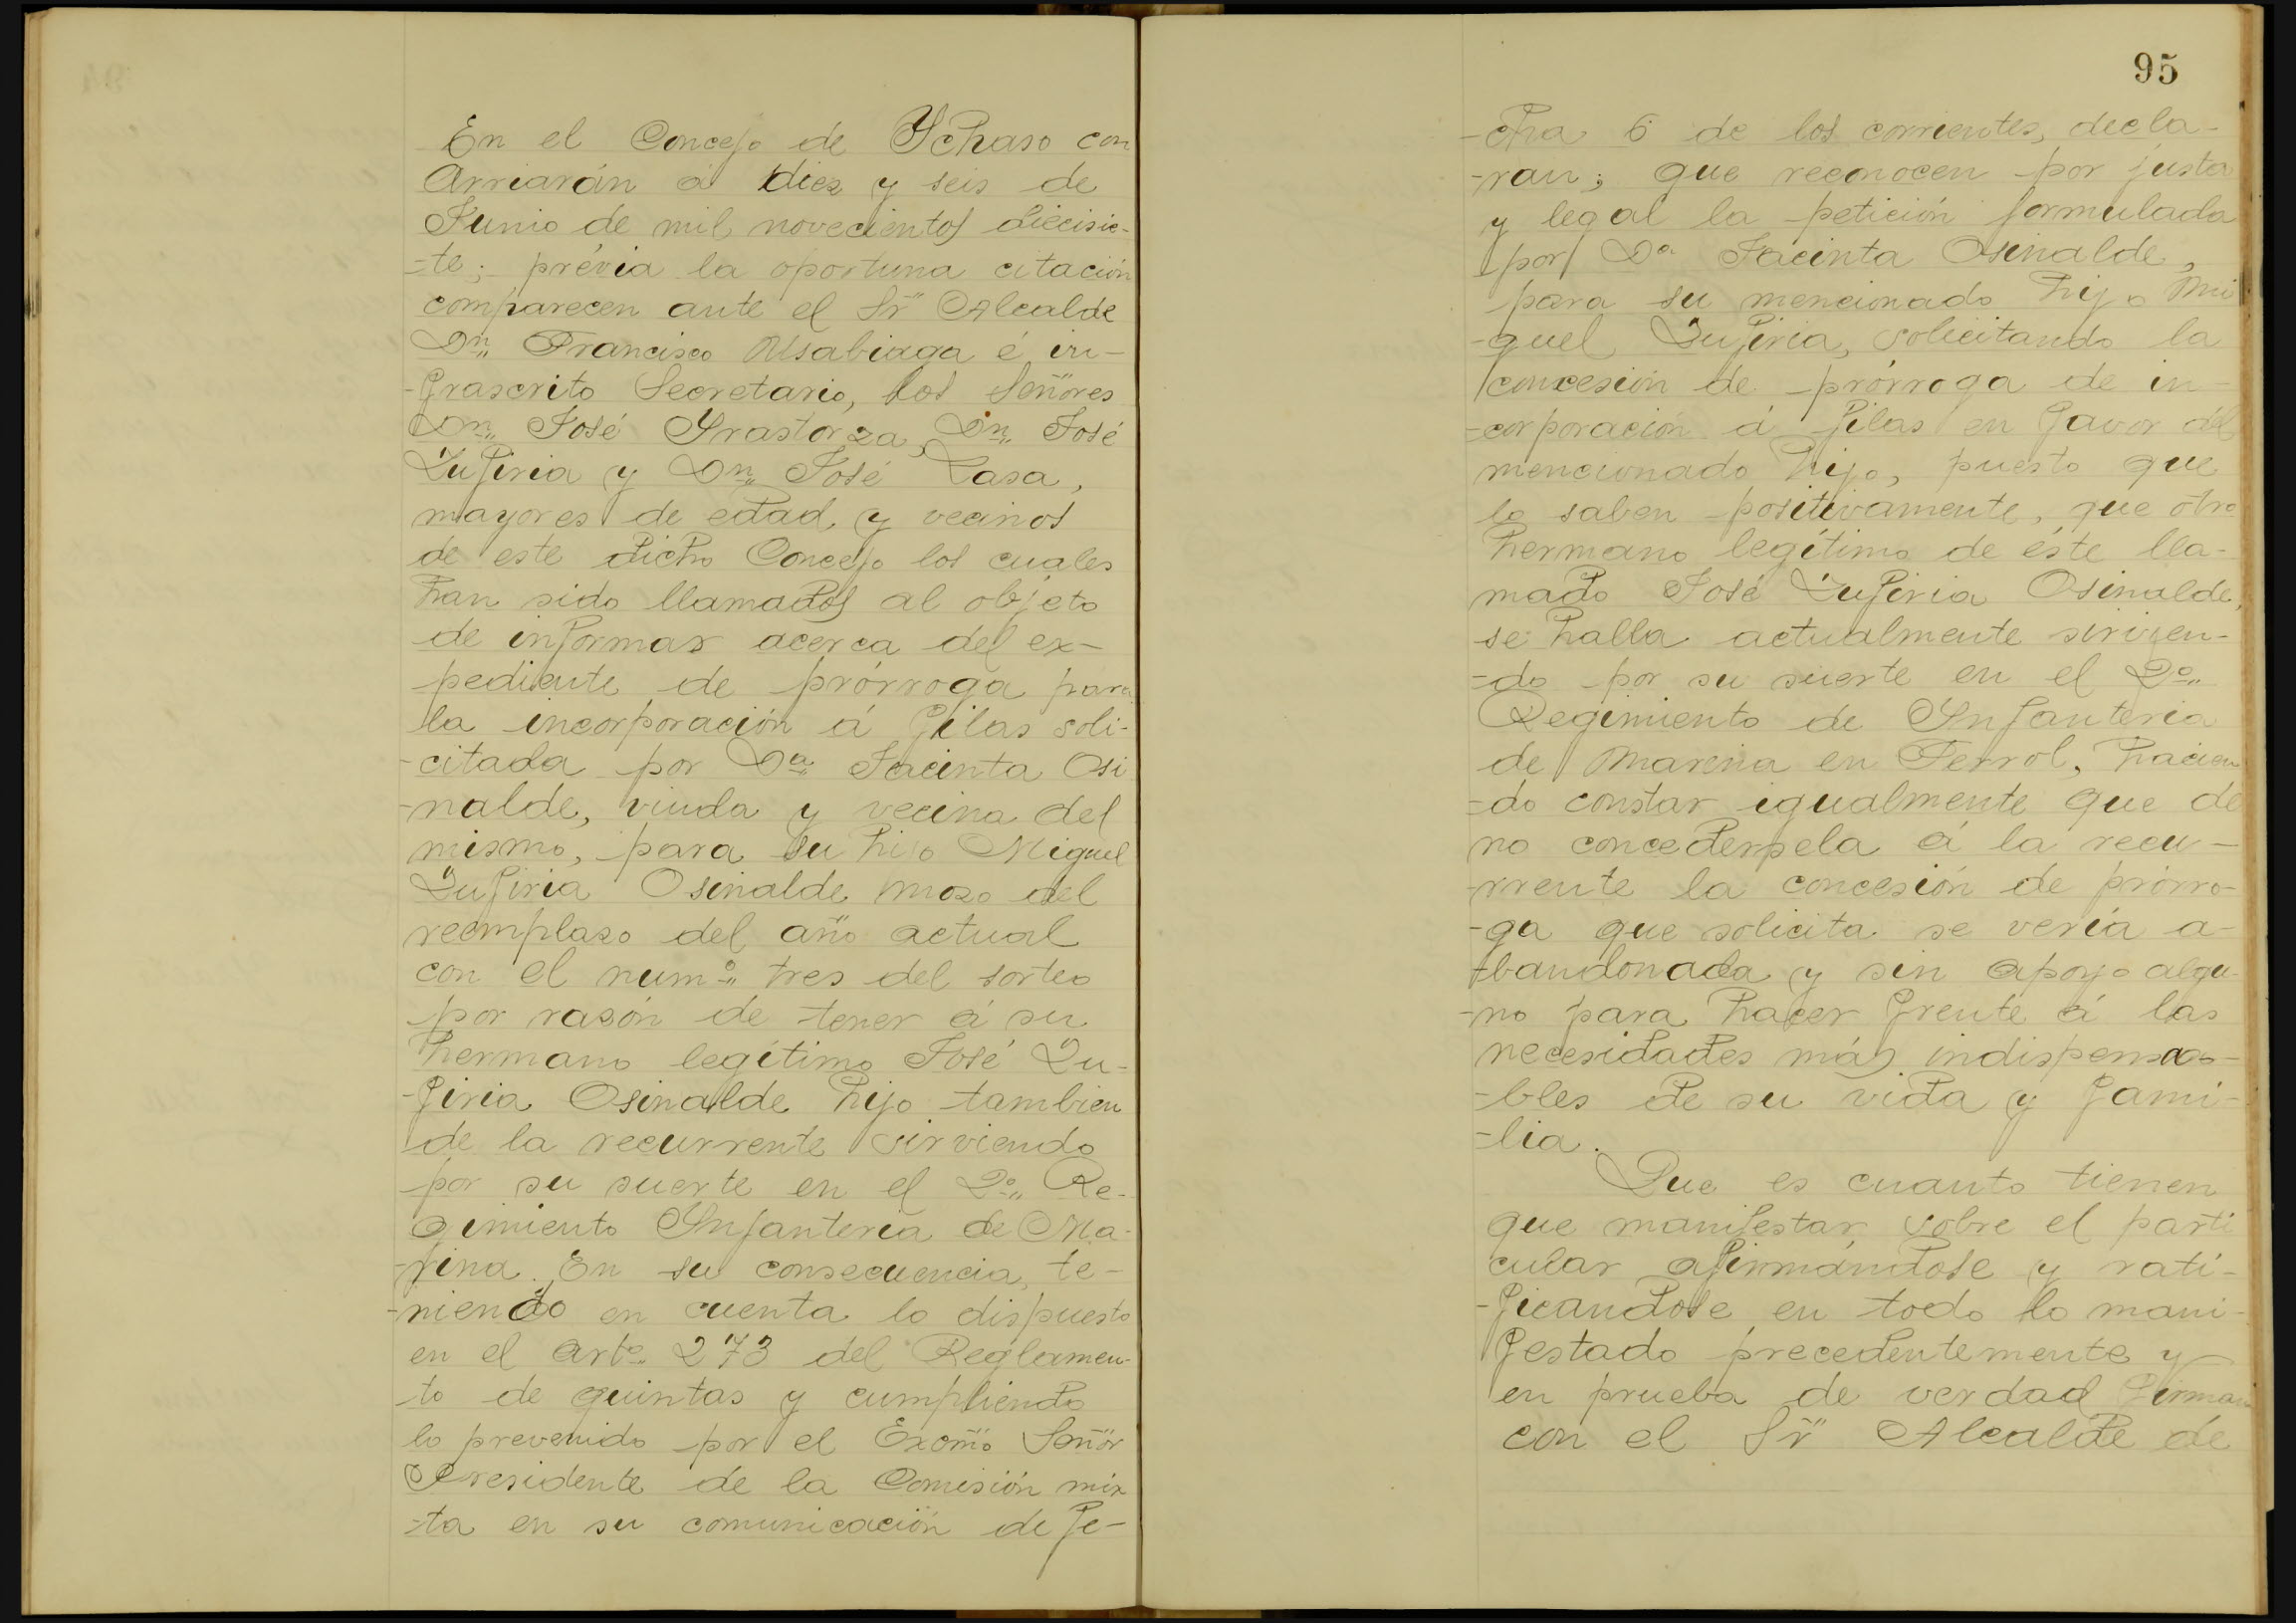 En el Concejo de Ychaso con
Arriarán á diez y seis de
Junio de mil novecientos diecisie-
-te; prévia la oportuna citación
comparecen ante el Sr Alcalde
Dn Francisco Usabiaga é in-
-frascrito Secretario, los Señores
Dn José Yrastorza, Dn José
Zufiria y Dn José Lasa,
mayores de edad, y vecinos
de este dicho Concejo los cuales
han sido llamados al objeto
de informar acerca del ex-
pediente de prórroga para
la incorporación á filas soli-
-citada por Dª Jacinta Osi
-nalde, viuda y vecina del
mismo, para su hijo Miguel
Zufiria Osinalde mozo del
reemplazo del año actual
con el numº tres del sorteo
por razón de tener á su
hermano legítimo José Zu-
-firia Osinalde hijo tambien
de la recurrente sirviendo
por su suerte en el 2º Re-
gimiento Ynfanteria de Ma-
-rina. En su consecuencia, te-
-niendo en cuenta lo dispuesto
en el artº 273 del Reglamen-
to de quintas y cumpliendo
lo prevenido por el Excmo Señor
Presidente de la Comisión mix
-ta en su comunicación de fe-
95
-cha 6 de los corrientes, decla-
-ran; que reconocen por justa
y legal la petición formulada
por Dª Jacinta Osinalde,
para su mencionado hijo Mi
-guel Zufiria, solicitando la
concesión de prórroga de in-
-corporación á filas en favor del
mencionado hijo, puesto que
lo saben positivamente, que otro
hermano legítimo de éste lla-
mado José Zufiria Osinalde,
se halla actualmente sirvien-
-do por su suerte en el 2º
Regimiento de Ynfanteria
de Marina en Ferrol, hacien
-do constar igualmente que de
no concedersela á la recu-
-rrente la concesión de prórro-
-ga que solicita se vería a-
-bandonada y sin apoyo algu-
-no para hacer frente á las
necesidades más indispensa-
-bles de su vida y fami-
-lia.
Que es cuanto tienen
que manifestar sobre el parti
cular afirmándose y rati-
-ficandose en todo lo mani-
festado precedentemente y
en prueba de verdad firman
con el Sr Alcalde de